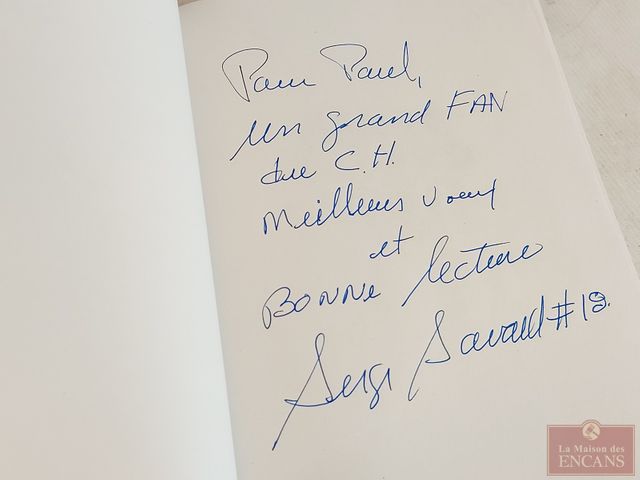 Pour Paul,
un grand FAN
du C.H.
Meilleurs voeux
et
BONNE lecture
Serge Savard #18.
La Maison des
ENCANS